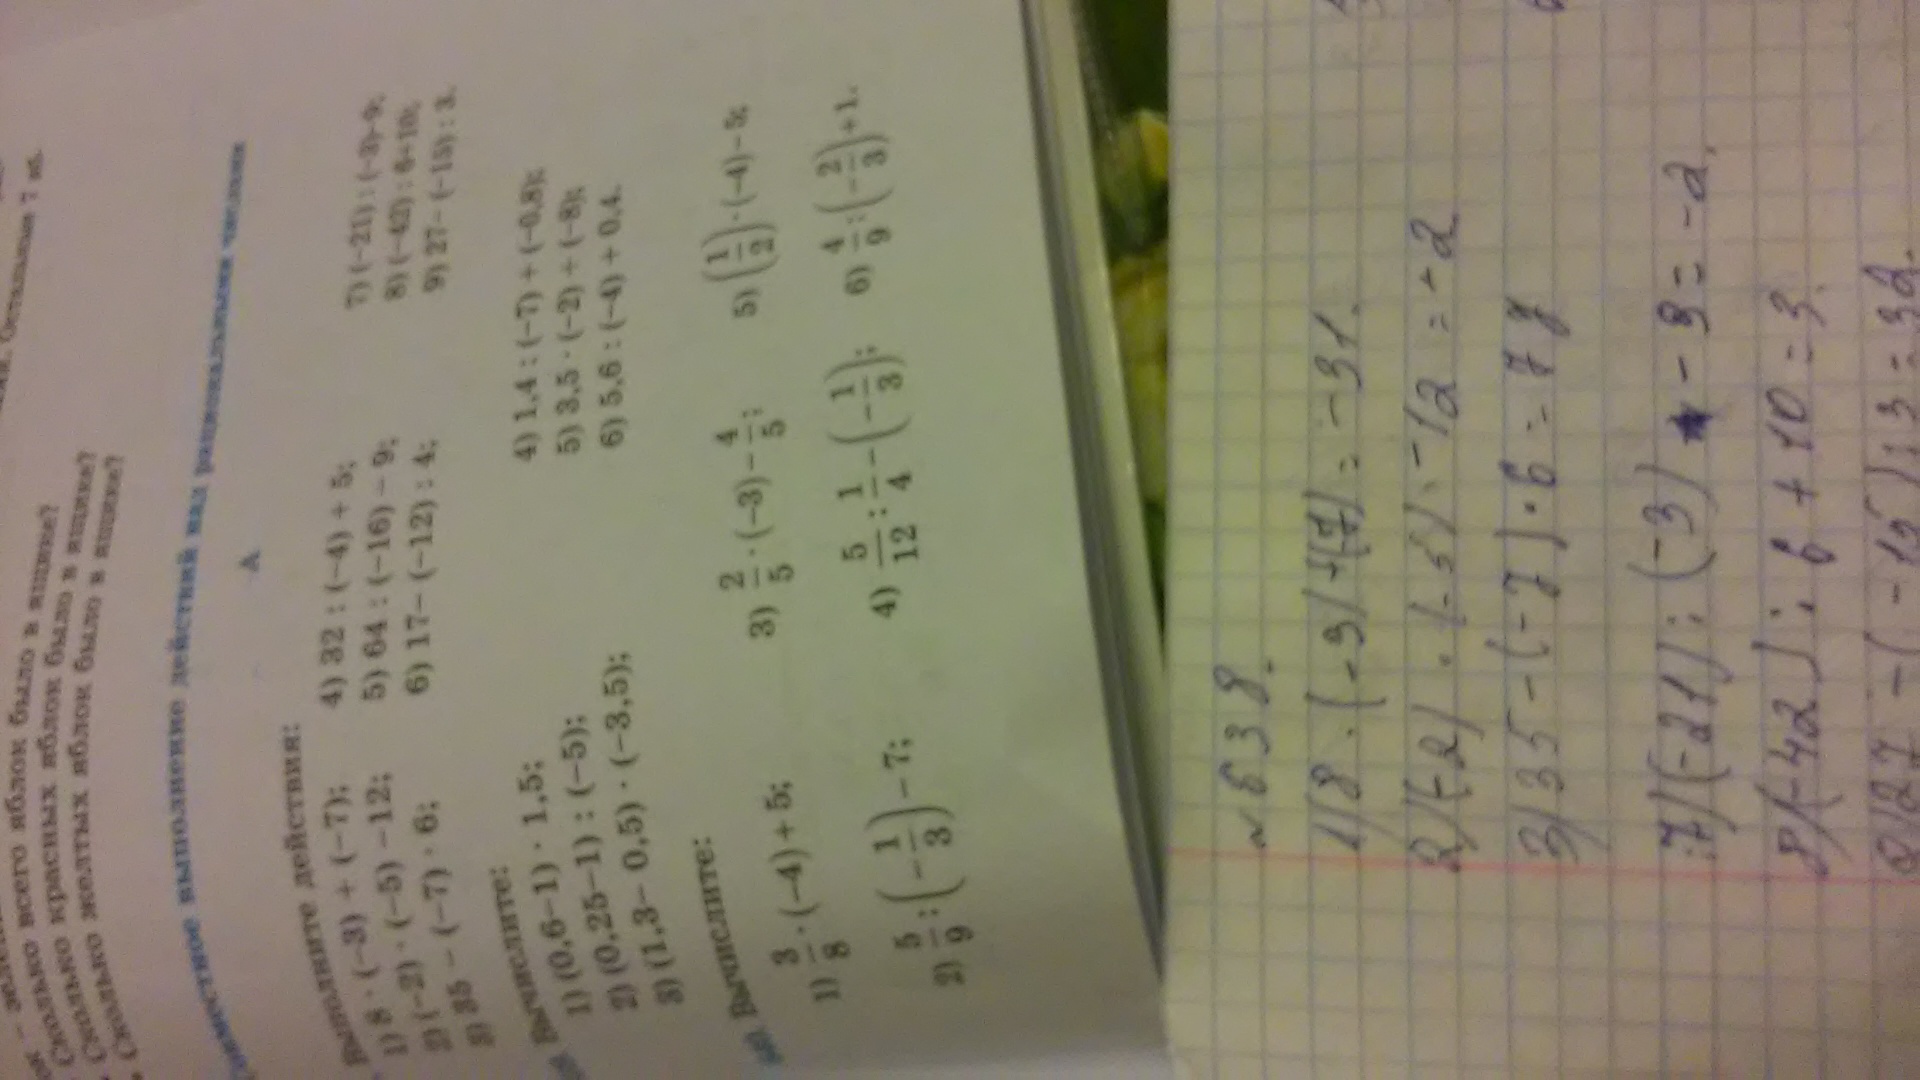 Остальные 7 кг.
Сколько всего яблок было в ящике?
Сколько красных яблок было в ящике?
Сколько желтых яблок было в ящике?
Совместное выполнение действий над рациональными числами
А
Выполните действия:
1) 8 · (−3) + (−7); 4) 32 : (−4) + 5; 7) (−21) : (−3)−9;
2) (−2) · (−5) −12; 5) 64 : (−16) − 9; 8) (−42) : 6+10;
3) 35 − (−7) · 6; 6) 17− (−12) : 4; 9) 27− (−15) : 3.
Вычислите:
1) (0,6−1) · 1,5; 4) 1,4 : (−7) + (−0,8);
2) (0,25−1) : (−5); 5) 3,5 · (−2) + (−8);
3) (1,3− 0,5) · (−3,5); 6) 5,6 : (−4) + 0,4.
Вычислите:
1) 3/8 · (−4) + 5; 3) 2/5 · (−3) − 4/5; 5) (1/2) · (−4) − 5;
2) 5/9 : (−1/3) − 7; 4) 5/12 : 1/4 − (−1/3); 6) 4/9 : (−2/3) + 1.
№ 638.
1) 8 · (−3) + (−7) = −31.
2) (−2) · (−5) − 12 = −2
3) 35 − (−7) · 6 = 77
7) (−21) : (−3) − 9 = −2.
8) (−42) : 6 + 10 = 3.
9) 27 − (−15) : 3 = 32.